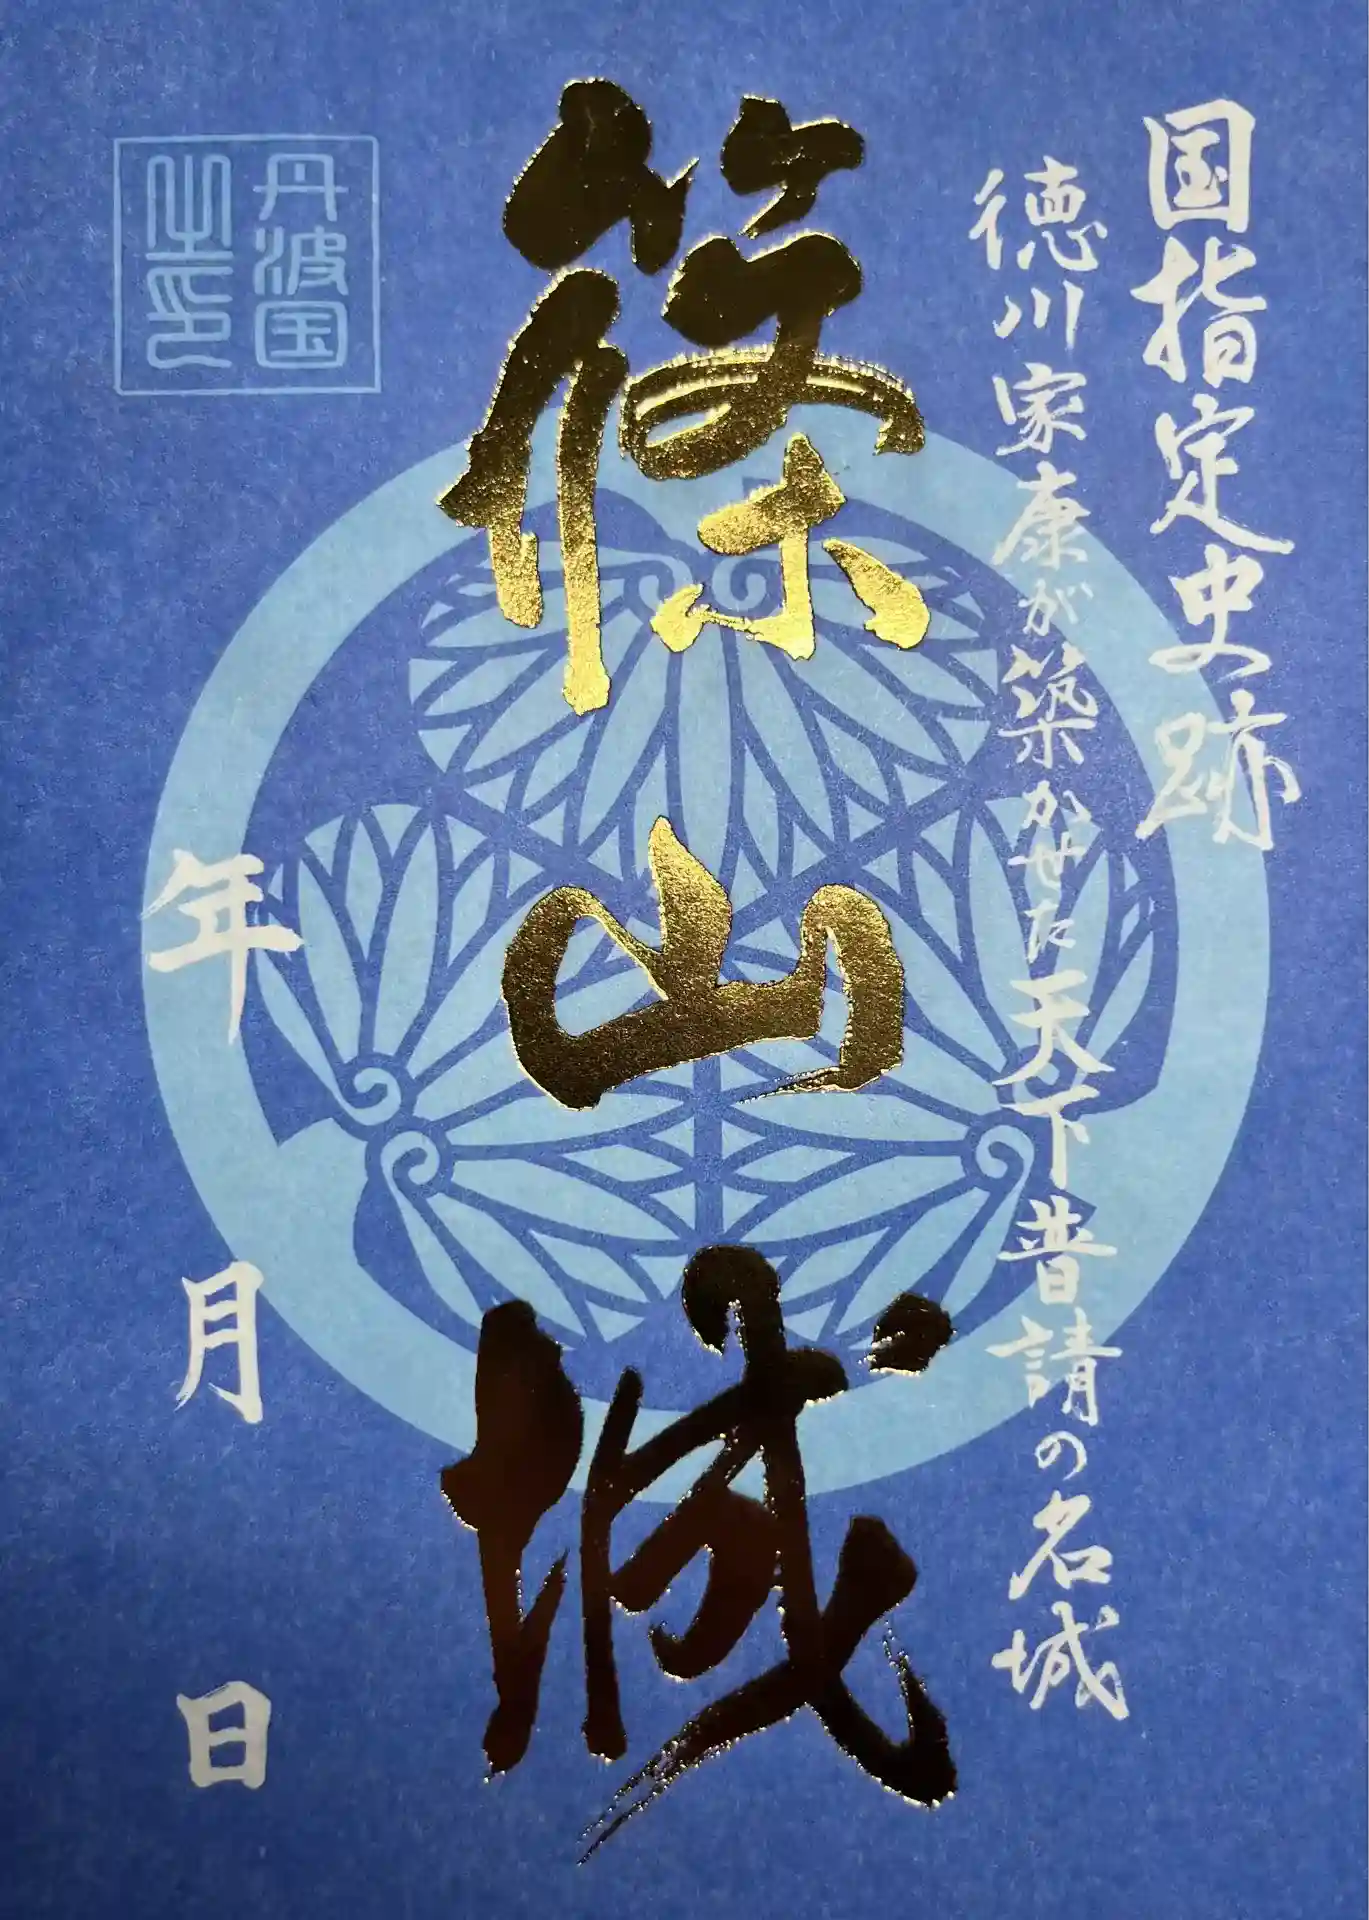 国指定史跡
徳川家康が築かせた天下普請の名城
篠山城
丹波国
之印
年 月 日